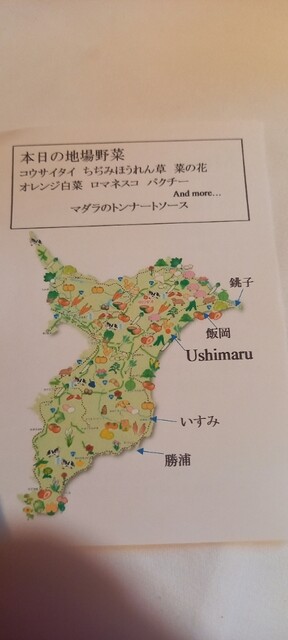 本日の地場野菜
コウサイタイ ちぢみほうれん草 菜の花
オレンジ白菜 ロマネスコ パクチー
And more…
マダラのトンナートソース
銚子
飯岡
Ushimaru
いすみ
勝浦